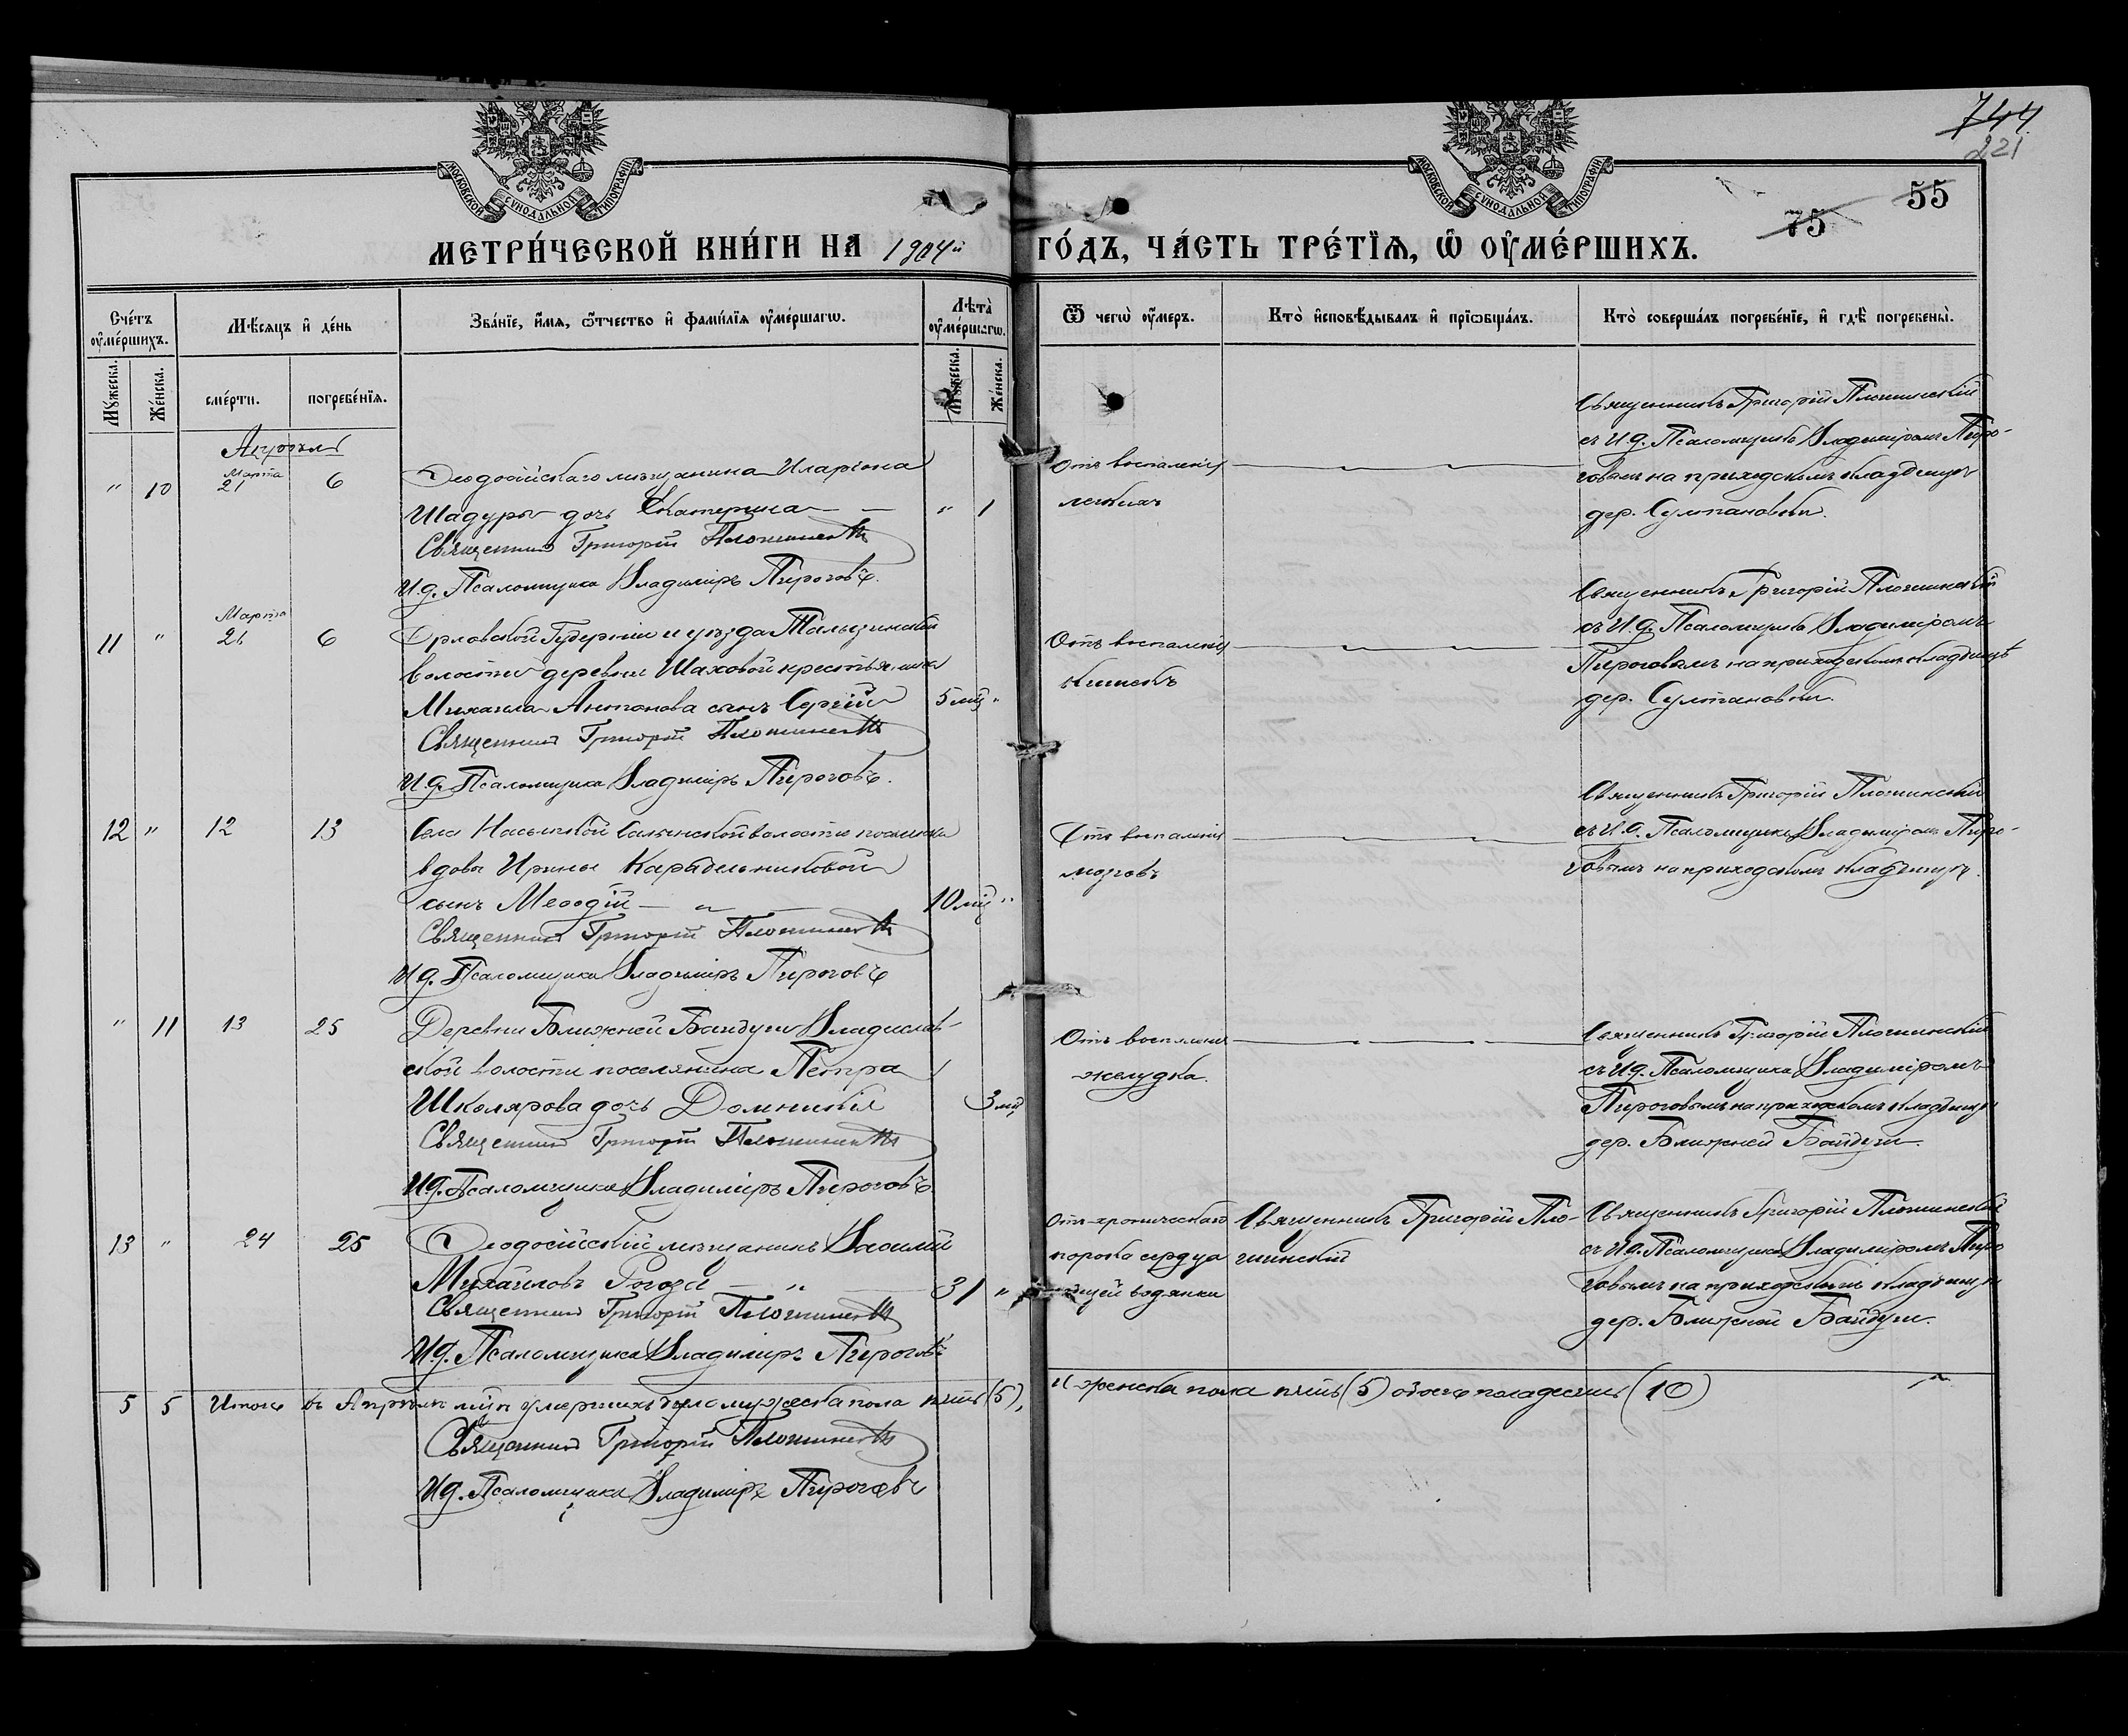 744
221
75
55
МОСКОВСКОЙ СѴНОДАЛЬНОЙ ТИПОГРАФІИ
МОСКОВСКОЙ СѴНОДАЛЬНОЙ ТИПОГРАФІИ
МЕТРИ́ЧЕСКОЙ КНИ́ГИ НА 1904й ГО́ДЪ, ЧА́СТЬ ТРЕ́ТІѦ, Ѡ҆ ОУ҆МЕ́РШИХЪ.
Сче́тъ оу҆ме́ршихъ.
Мѣ́сяцъ и҆ де́нь
Зва́нїе, и҆́мя, ѻ҆́тчество и҆ фами́лїя оу҆ме́ршагѡ.
Лѣта̀ оу҆ме́ршагѡ.
Ѿ чегѡ̀ оу҆́меръ.
Кто̀ и҆сповѣ́дывалъ и҆ прїѡбща́лъ.
Кто̀ соверша́лъ погребе́нїе, и҆ гдѣ̀ погребены̀.
Му́жеска.
Же́нска.
сме́рти.
погребе́нїя.
Му́жеска.
Же́нска.
Апрѣль
" 10 Марта 21 6 Ѳеодосійскаго мѣщанина Иларіона
Шадуры дочь Екатерина " 1
Священникъ Григорій Плошинскій
И.д. Псаломщика Владиміръ Пироговъ.
Отъ воспаленія
легкихъ
Священникъ Григорій Плошинскій
съ И.д. Псаломщика Владиміромъ Пиро-
говымъ на приходскомъ кладбищѣ
дер. Султановки.
11 " Марта 26 Орловской Губерніи и уѣзда
волости деревни Шаховой крестьянина
Михаила Антонова сынъ Сергій 5 мѣс "
Священникъ Григорій Плошинскій
И.д. Псаломщика Владиміръ Пироговъ.
Отъ воспаленія
кишекъ
Священникъ Григорій Плошинскій
съ И.д. Псаломщика Владиміромъ
Пироговымъ на приходскомъ кладбищѣ
дер. Султановки.
12 " 12 13 Села Насыпкой волости поселянки
вдовы Ирины Карабельниковой
сынъ Меѳодій 10 мѣс "
Священникъ Григорій Плошинскій
И.д. Псаломщика Владиміръ Пироговъ
Отъ воспаленія
мозговъ
Священникъ Григорій Плошинскій
съ И.д. Псаломщика Владиміромъ Пиро-
говымъ на приходскомъ кладбищѣ.
" 11 13 25 Деревни Ближней Байбуги Владислав-
ской волости поселянина Петра
Школярова дочь Домникія 3 мѣс
Священникъ Григорій Плошинскій
И.д. Псаломщика Владиміръ Пироговъ.
Отъ воспаленія
желудка.
Священникъ Григорій Плошинскій
съ И.д. Псаломщика Владиміромъ
Пироговымъ на приходскомъ кладбищѣ
дер. Ближней Байбуги.
13 " 24 25 Ѳеодосійскій мѣщанинъ Василій
Михайловъ Рогоза " 31 "
Священникъ Григорій Плошинскій
И.д. Псаломщика Владиміръ Пироговъ
Отъ хроническаго
порока сердца
общей водянки
Священникъ Григорій Пло-
шинскій
Священникъ Григорій Плошинскій
съ И.д. Псаломщика Владиміромъ Пиро
говымъ на приходскомъ кладбищѣ
дер. Ближней Байбуги.
5 5 Итого въ Апрѣлѣ м-цѣ умершихъ было мужеска пола пять (5), и женска пола пять (5) обоего пола десять (10)
Священникъ Григорій Плошинскій
И.д. Псаломщика Владиміръ Пироговъ